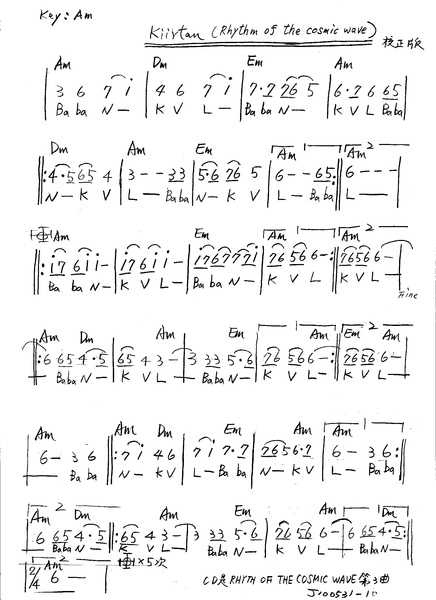 Key: Am
Kiirtan (Rhythm of the cosmic wave) 校正版
Am Dm Em Am
3 6 7 i 4 6 7 i 7·7 76 5 6·7 6 65
Ba ba N — K V L — Ba ba N — K V L Baba
Dm Am Em Am 1 Am 2
4·5 65 4 3 - - 33 5·6 76 5 6 - - 65 6 - - -
N — K V L — Baba N — K V L — Baba L —
Am Em Am 1 Am 2
i7 6 i i - i7 6 i i - i7 67 77 7i 76 56 6 - 76 56 6 -
Ba ba N — K V L — Ba ba N — K V L — K V L —
Fine
Am Dm Am Em 1 Am Em 2 Am
6 65 4·5 65 4 3 - 3 33 5·6 76 56 6 - 76 56 6 -
Baba N — K V L — Baba N — K V L — K V L —
Am Am Dm Em Am Am 1
6 - 3 6 7 i 4 6 7 i 7·7 76 5 6·7 6 - 3 6
Ba ba N — K V L — Ba ba N — K V L — Ba ba
Am 2 Dm Am Em Am 1 Dm
6 65 4·5 65 4 3 - 3 33 5·6 76 56 6 - 6 65 4·5
Baba N — K V L — Baba N — K V L — Baba N —
2/4 Am 2 6 - ×5次
CD是 RHYTH OF THE COSMIC WAVE 第3曲
J100531-10